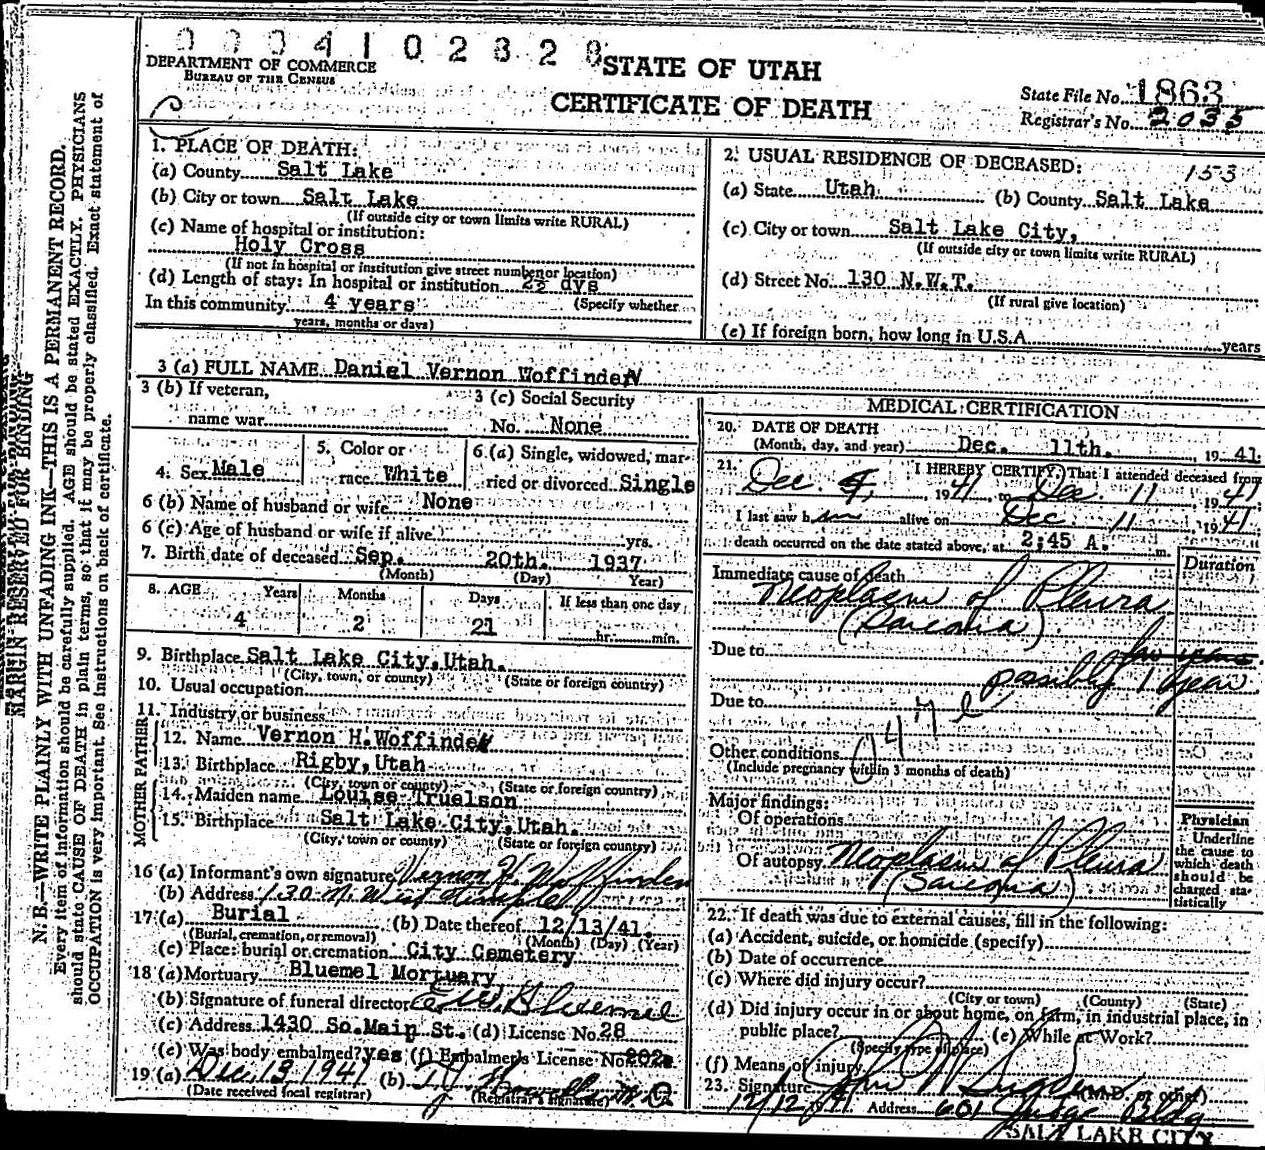 000410 2328
DEPARTMENT OF COMMERCE
BUREAU OF THE CENSUS
STATE OF UTAH
CERTIFICATE OF DEATH
State File No. 1863
Registrar's No. 2035
1. PLACE OF DEATH:
(a) County Salt Lake
(b) City or town Salt Lake
(If outside city or town limits write RURAL)
(c) Name of hospital or institution:
Holy Cross
(If not in hospital or institution give street number or location)
(d) Length of stay: In hospital or institution 2½ dys
In this community 4 years (Specify whether
years, months or days)
2. USUAL RESIDENCE OF DECEASED: 153
(a) State Utah (b) County Salt Lake
(c) City or town Salt Lake City,
(If outside city or town limits write RURAL)
(d) Street No. 130 N.W.T.
(If rural give location)
(e) If foreign born, how long in U.S.A. years
3 (a) FULL NAME Daniel Vernon Woffinden
3 (b) If veteran,
name war
3 (c) Social Security
No. None
4. Sex Male
5. Color or
race White
6.(a) Single, widowed, mar-
ried or divorced Single
6 (b) Name of husband or wife None
6 (c) Age of husband or wife if alive yrs.
7. Birth date of deceased Sep. 20th. 1937
(Month) (Day) Year)
8. AGE Years Months Days If less than one day
4 2 21 hr. min.
9. Birthplace Salt Lake City, Utah.
(City, town, or county) (State or foreign country)
10. Usual occupation
11. Industry or business
FATHER
12. Name Vernon H. Woffinden
13. Birthplace Rigby, Utah
(City, town or county) (State or foreign country)
MOTHER
14. Maiden name Louise Truelson
15. Birthplace Salt Lake City, Utah.
(City, town or county) (State or foreign country)
16 (a) Informant's own signature Vernon H. Woffinden
(b) Address 130 N. West Temple
17.(a) Burial (b) Date thereof 12/13/41.
(Burial, cremation, or removal) (Month) (Day) (Year)
(c) Place: burial or cremation City Cemetery
18 (a) Mortuary Bluemel Mortuary
(b) Signature of funeral director E.W. Bluemel
(c) Address 1430 So. Main St. (d) License No. 28
(e) Was body embalmed? yes (f) Embalmer's License No. 202
19 (a) Dec. 13 1941 (b) M.D.
(Date received local registrar) (Registrar's signature)
MEDICAL CERTIFICATION
20. DATE OF DEATH
(Month, day, and year) Dec. 11th. , 19 41
21. I HEREBY CERTIFY, That I attended deceased from
Dec. 9, 1941, to Dec. 11, 1941,
I last saw him alive on Dec. 11, 1941.
death occurred on the date stated above, at 2:45 A. m.
Duration
Immediate cause of death
Neoplasm of Pleura
(Sarcoma)
Due to two years
possibly 1 year
Due to
47 e
Other conditions
(Include pregnancy within 3 months of death)
Major findings:
Of operations
Of autopsy Neoplasm of Pleura
(Sarcoma)
Physician
Underline
the cause to
which death
should be
charged sta-
tistically
22. If death was due to external causes, fill in the following:
(a) Accident, suicide, or homicide (specify)
(b) Date of occurrence
(c) Where did injury occur?
(City or town) (County) (State)
(d) Did injury occur in or about home, on farm, in industrial place, in
public place? (e) While at Work?
(Specify type of place)
(f) Means of injury
23. Signature (M.D. or other)
12/12/41 Address 601 Judge Bldg
SALT LAKE CITY
MARGIN RESERVED FOR BINDING
N. B.—WRITE PLAINLY WITH UNFADING INK—THIS IS A PERMANENT RECORD.
Every item of information should be carefully supplied. AGE should be stated EXACTLY. PHYSICIANS
should state CAUSE OF DEATH in plain terms, so that it may be properly classified. Exact statement of
OCCUPATION is very important. See instructions on back of certificate.